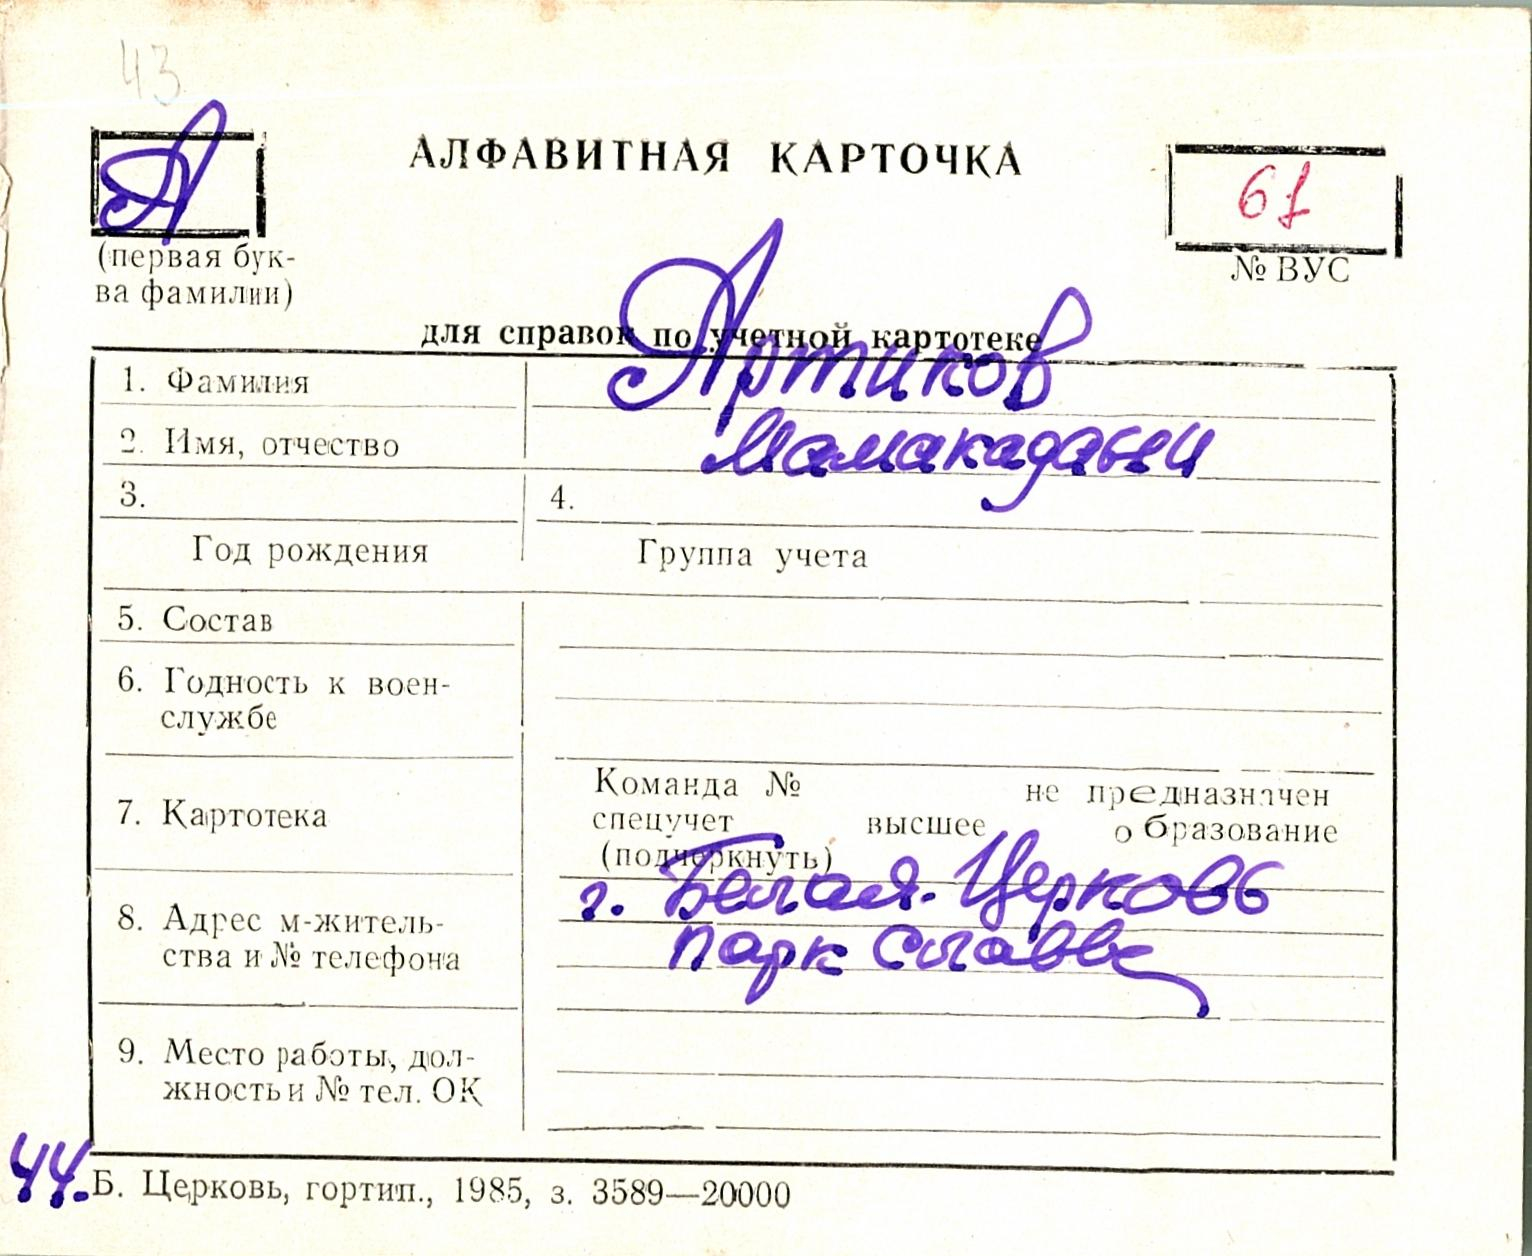 43
А
АЛФАВИТНАЯ КАРТОЧКА
61
(первая бук-
ва фамилии)
№ ВУС
для справок по учетной картотеке
1. Фамилия Артиков
2. Имя, отчество
3. 4.
Год рождения Группа учета
5. Состав
6. Годность к воен-
службе
Команда № не предназначен
7. Картотека спецучет высшее образование
(подчеркнуть)
г. Белая-Церковь
8. Адрес м-житель-
ства и № телефона парк Славы
9. Место работы, дол-
жность и № тел. ОК
44.
Б. Церковь, гортип., 1985, з. 3589—20000